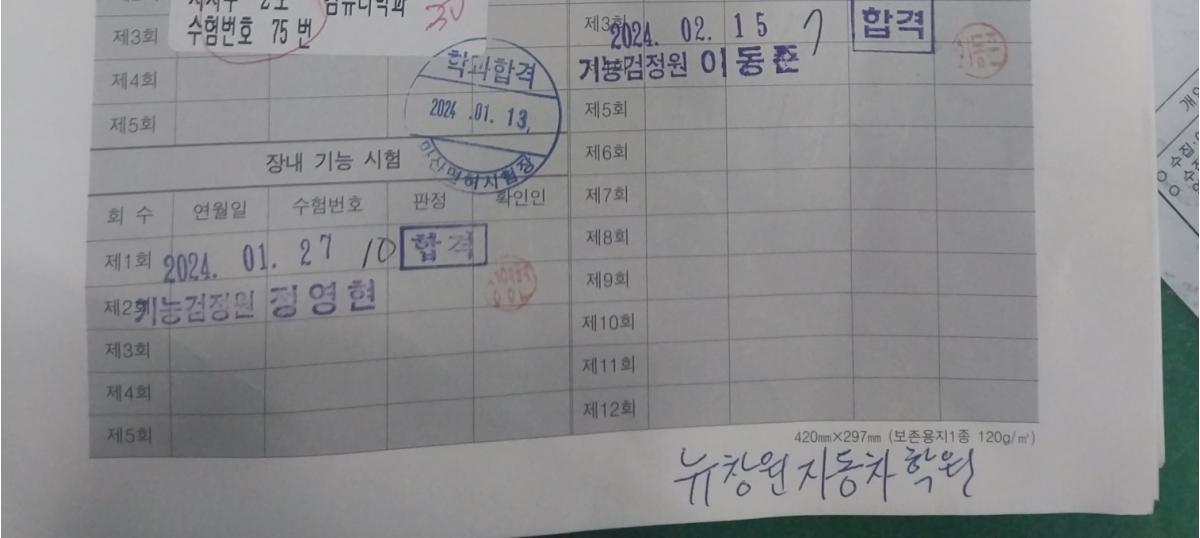 수험번호 75 번
제3회
제4회
제5회
학과합격
2024 .01. 13.
마산면허시험장
장내 기능 시험
회 수 연월일 수험번호 판정 확인인
제1회 2024. 01. 27 10 합격
제2회 기능검정원 정영현
제3회
제4회
제5회
제3회 2024. 02. 15 7 합격
기능검정원 이동준
제5회
제6회
제7회
제8회
제9회
제10회
제11회
제12회
420㎜×297㎜ (보존용지1종 120g/㎡)
뉴창원자동차학원